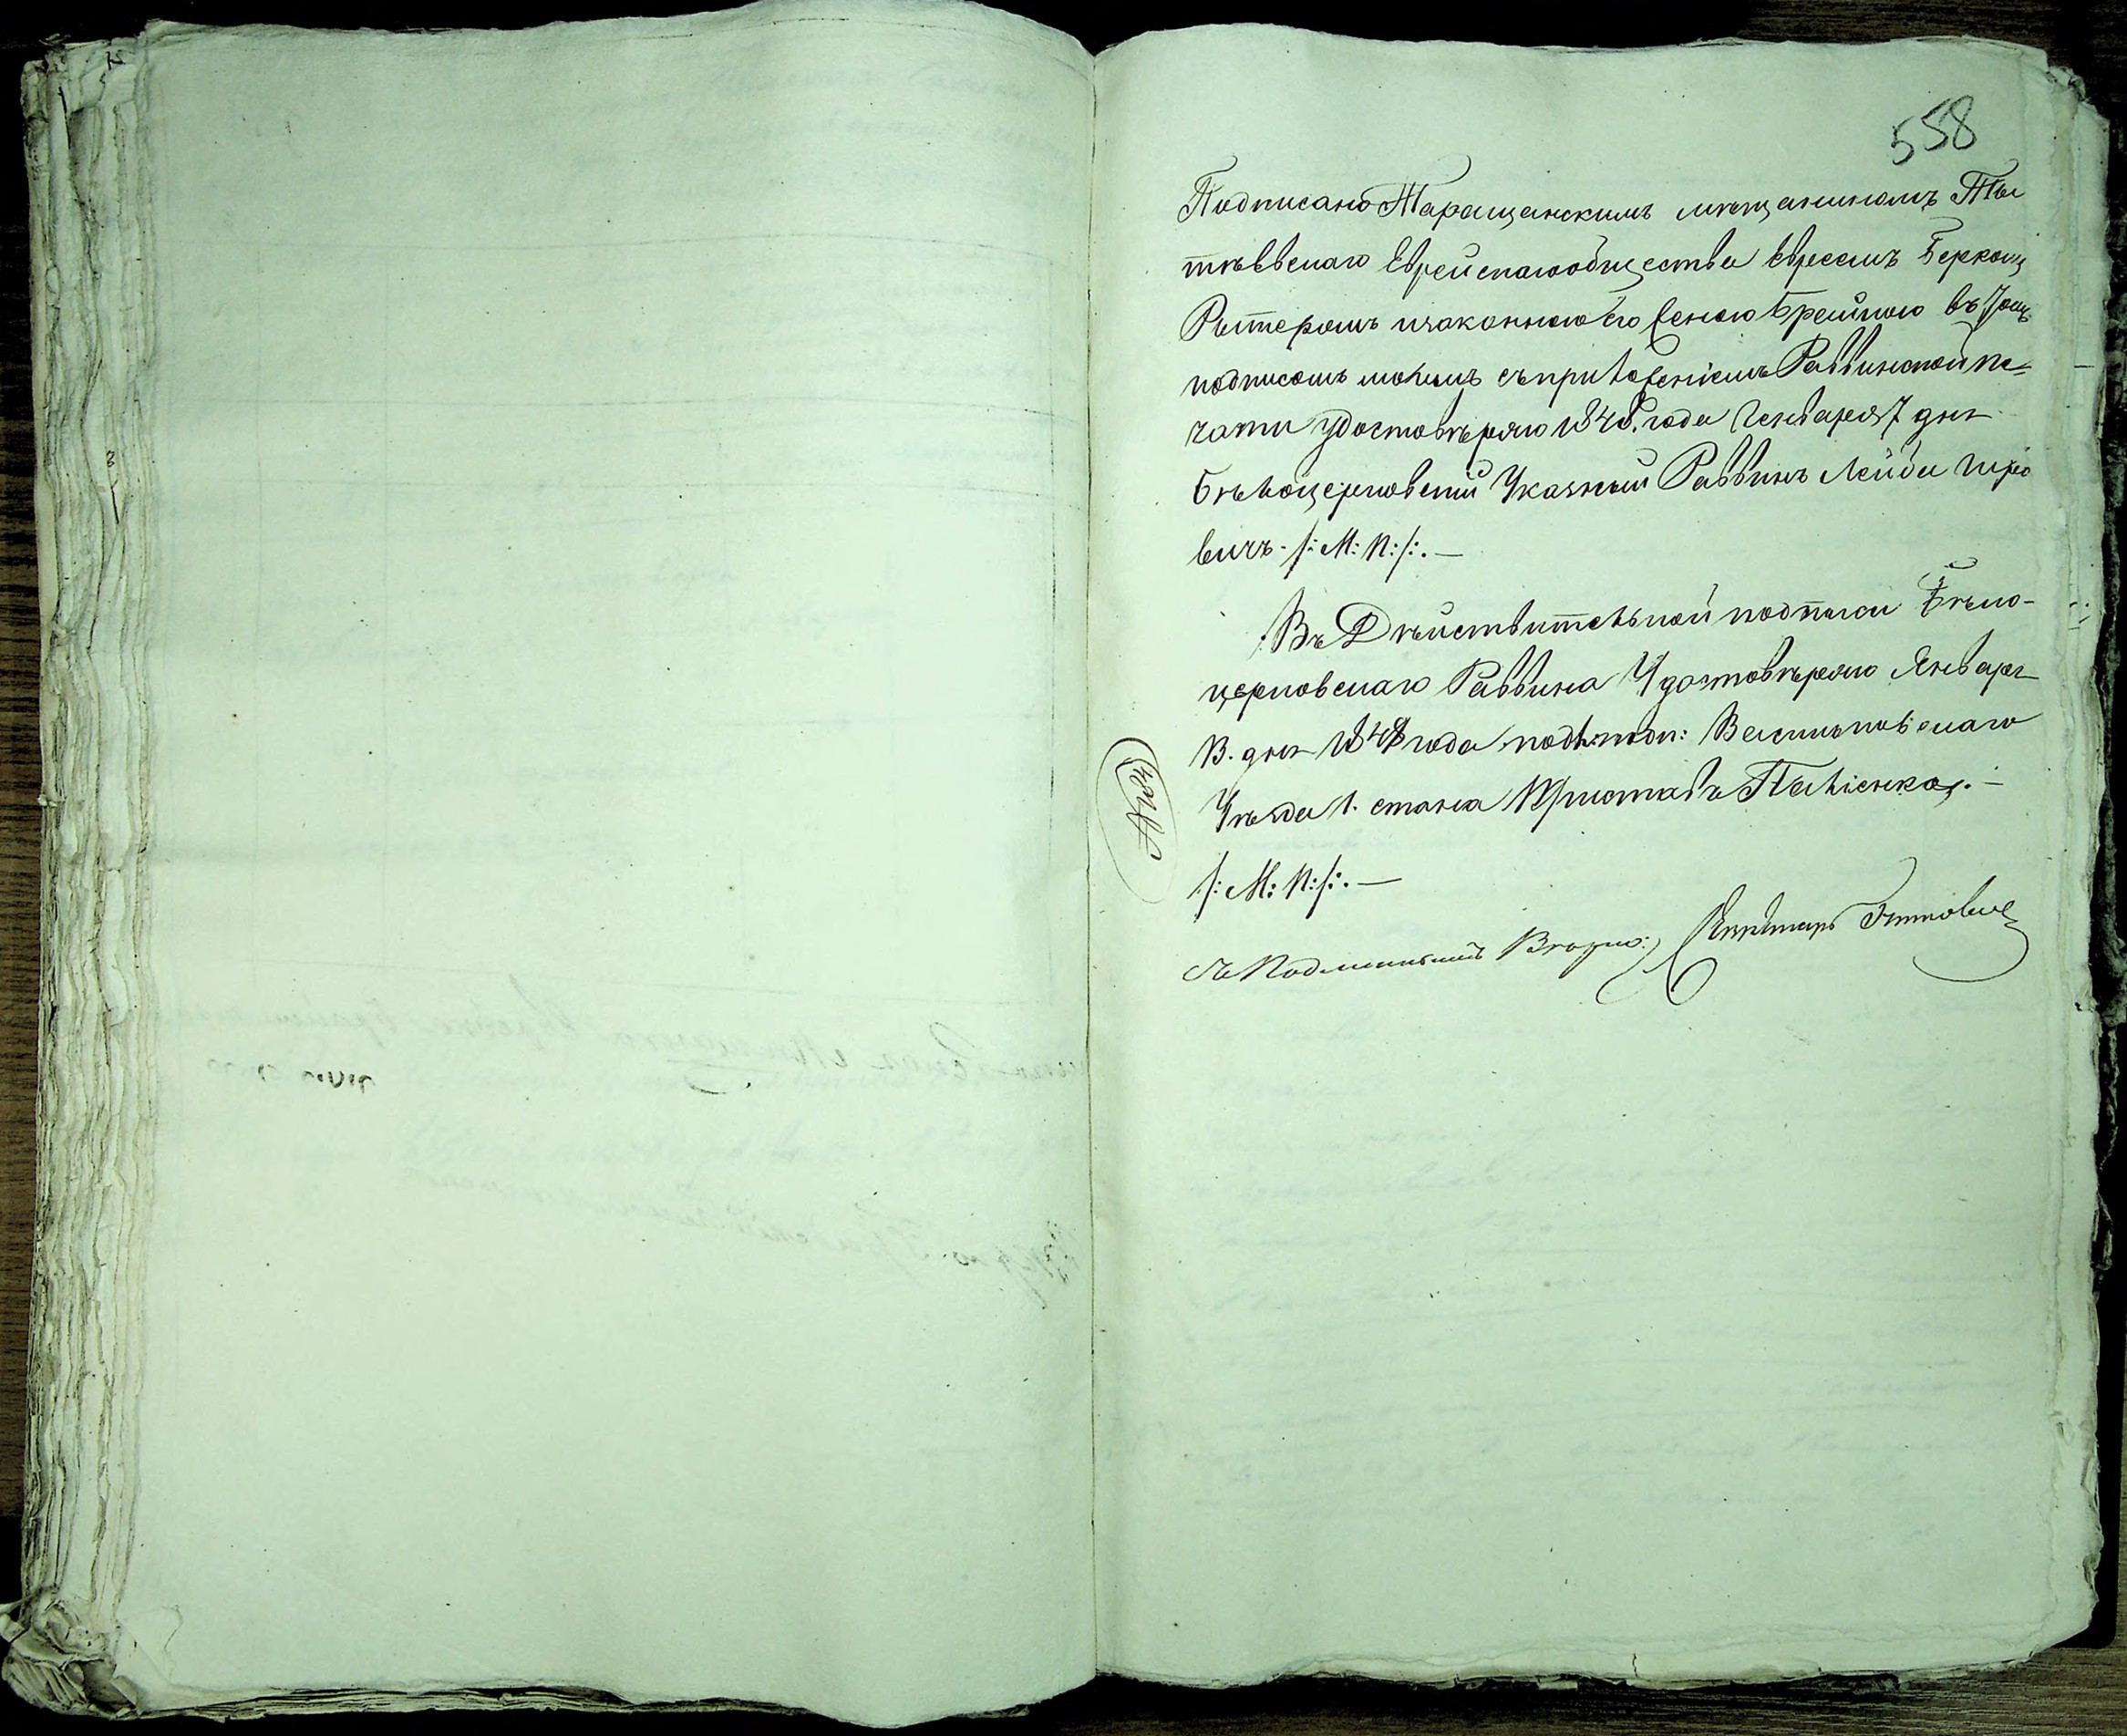 558
Подписано Таращанскимъ мѣщаниномъ Тѣ
тѣевскаго Еврейскаго общества Евреемъ Беркомъ
Рытеромъ изаконною его женою Брейною въ томъ
подписомъ моимъ съприложеніемъ Раввинской пе-
чати удостовѣряю 1848. года Генваря 7 дня
Бѣлоцерковскій Указный Раввинъ Лейба
вичъ - /: М: П: /: . —
Въ Дѣйствительной подписи Бѣло-
церковскаго Раввина Удостовѣряю Января
дня 1848 года подл: подп: Васильковскаго
Уѣзда 1. стана Приставъ
/: М: П: /: . —
Съ Подлиннымъ Вѣрно: Секретарь